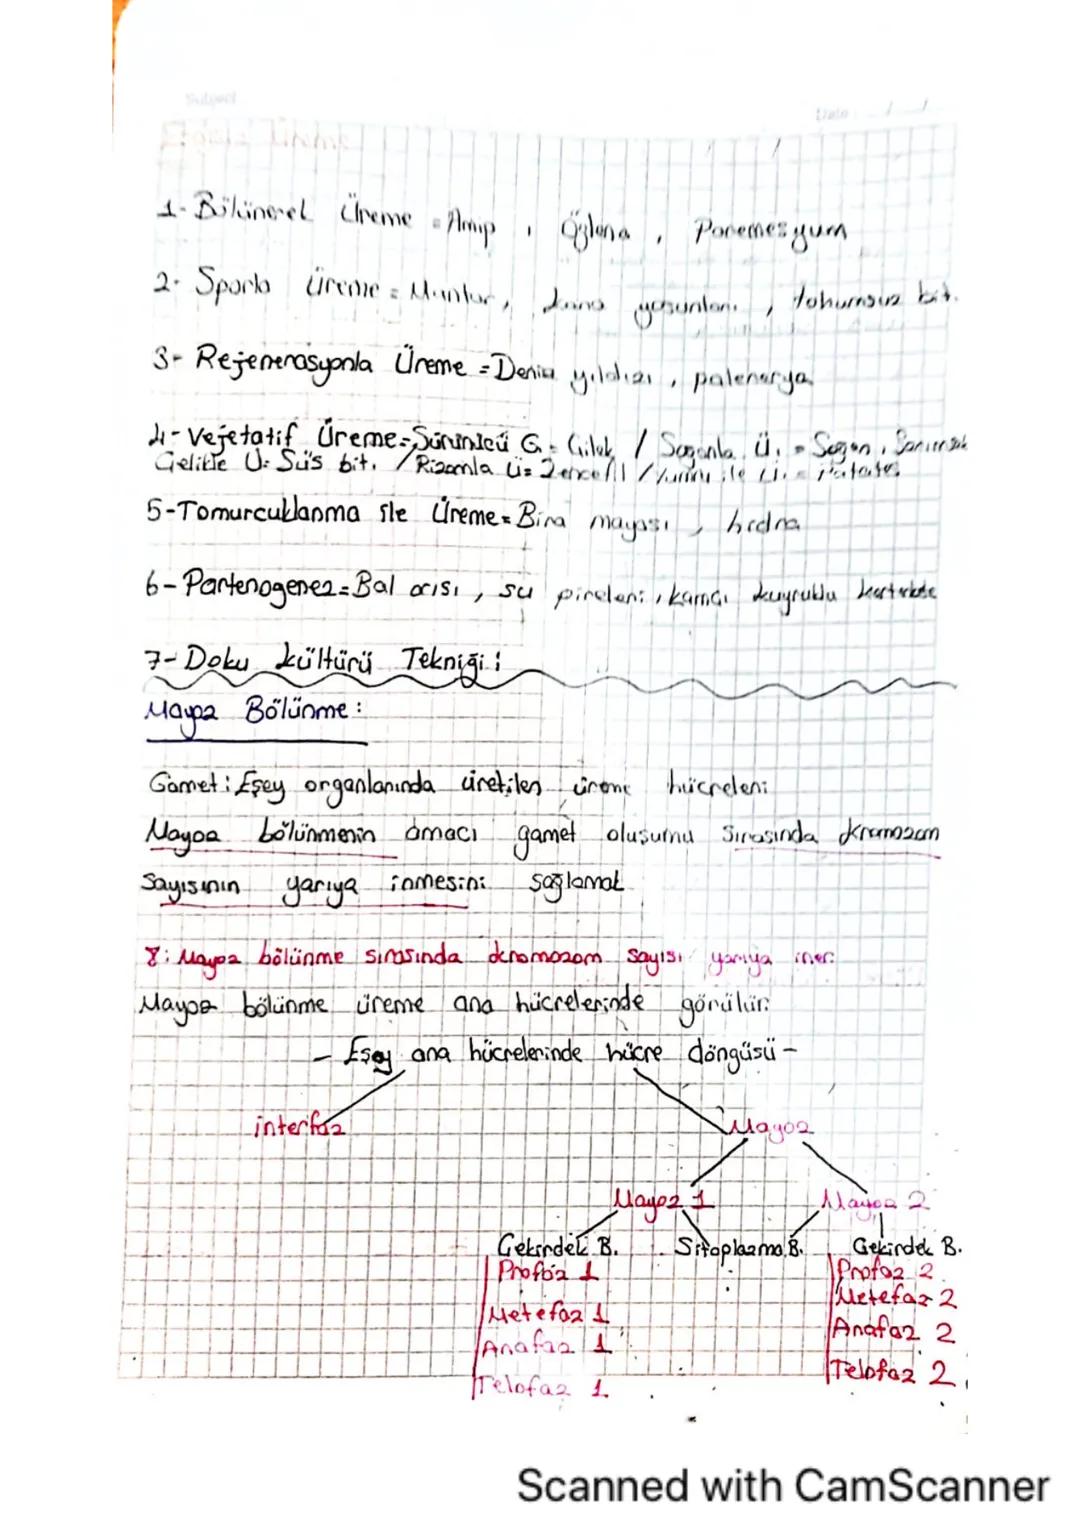 Subject
Date / /
Eşeysiz Üreme
1- Bölünerel Üreme = Amip , Öglena , Paremesyum
2- Sporla üreme = Mantar, kara yosunları , tohumsuz bit.
3- Rejenerasyonla Üreme = Deniz yıldızı , palenarya
4- Vejetatif Üreme = Sürünücü G. = Çilek / Soğanla Ü. = Soğan, Sarımsak
Çelikle Ü: Süs bit. / Rizomla Ü = Zencefil / Yumru ile Ü. = Patates
5-Tomurcuklanma ile Üreme = Bira mayası , hidra
6- Partenogenez = Bal arısı , su pireleri , kamçı kuyruklu kertenkele
7- Doku kültürü Tekniği :
Mayoz Bölünme :
Gamet : Eşey organlarında üretilen üreme hücreleri
Mayoz bölünmenin amacı gamet oluşumu sırasında kromozom
sayısının yarıya inmesini sağlamak
8: Mayoz bölünme sırasında kromozom sayısı yarıya iner.
Mayoz bölünme üreme ana hücrelerinde görülür.
- Eşey ana hücrelerinde hücre döngüsü -
interfaz Mayoz
Mayoz 1 Mayoz 2
Çekirdek B. Sitoplazma B. Çekirdek B.
Profaz 1 Profaz 2
Metefaz 1 Metefaz 2
Anafaz 1 Anafaz 2
Telofaz 1 Telofaz 2
Scanned with CamScanner